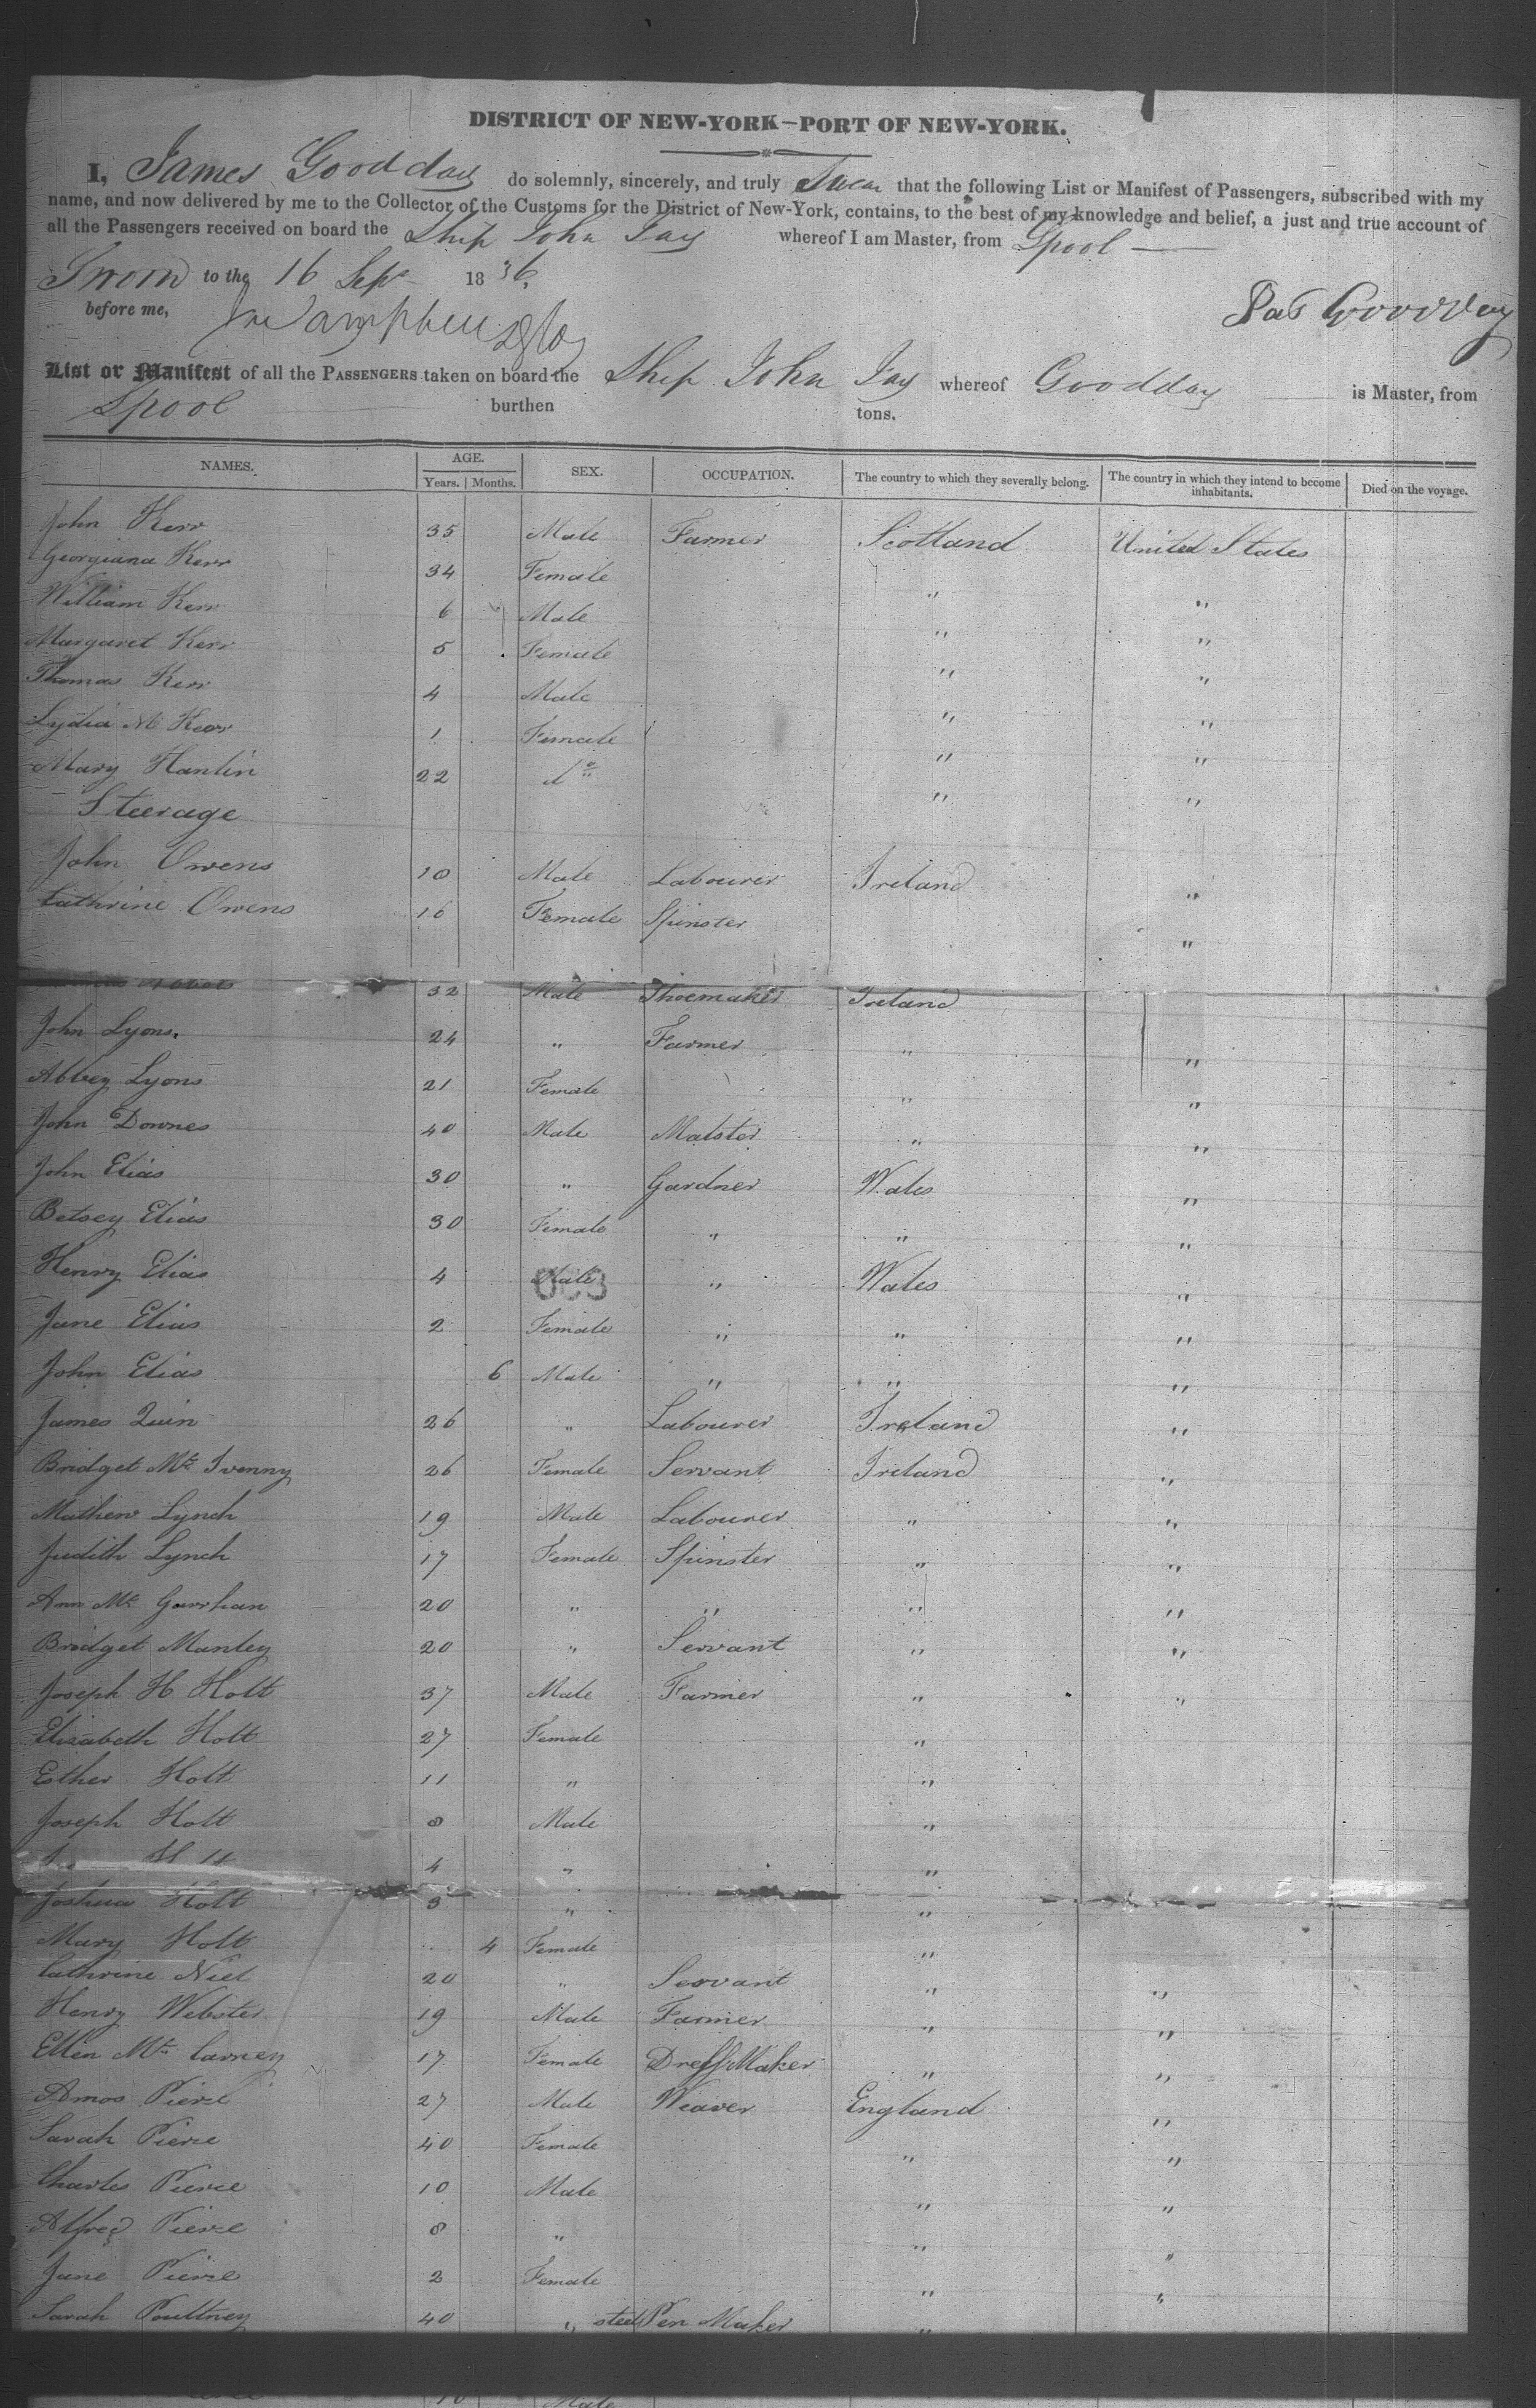 DISTRICT OF NEW-YORK—PORT OF NEW-YORK.
I, James Goodday do solemnly, sincerely, and truly Swear that the following List or Manifest of Passengers, subscribed with my
name, and now delivered by me to the Collector of the Customs for the District of New-York, contains, to the best of my knowledge and belief, a just and true account of
all the Passengers received on board the Ship John Jay whereof I am Master, from Lpool —
Sworn to the 16 Sepr 1836,
before me, Jas Goodday
List or Manifest of all the PASSENGERS taken on board the Ship John Jay whereof Goodday is Master, from
Lpool burthen tons.
NAMES. AGE. SEX. OCCUPATION. The country to which they severally belong. The country in which they intend to become inhabitants. Died on the voyage.
Years. Months.
John Kerr 35 Male Farmer Scotland United States
Georgiana Kerr 34 Female " "
William Kerr 6 Male " "
Margaret Kerr 5 Female " "
Thomas Kerr 4 Male " "
Lydia M Kerr 1 Female " "
Mary Hanlin 22 do " "
Steerage
John Owens 18 Male Labourer Ireland "
Cathrine Owens 16 Female Spinster "
32 Male Shoemaker Ireland
John Lyons. 24 " Farmer " "
Abbey Lyons 21 Female " "
John Downes 40 Male Malster " "
John Elias 30 " Gardner Wales "
Betsey Elias 30 Female " " "
Henry Elias 4 Male " Wales "
Jane Elias 2 Female " " "
John Elias 6 Male " " "
James Quin 26 " Labourer Ireland "
Bridget Mc 26 Female Servant Ireland "
Mathew Lynch 19 Male Labourer " "
Judith Lynch 17 Female Spinster " "
Ann Mc Garrhan 20 " " " "
Bridget Manley 20 " Servant " "
Joseph H Holt 37 Male Farmer " "
Elizabeth Holt 27 Female "
Esther Holt 11 " "
Joseph Holt 8 Male "
Holt 4 " "
Joshua Holt 3 " "
Mary Holt 4 Female "
Cathrine Niel 20 " Servant " "
Henry Webster 19 Male Farmer " "
Ellen Mc Carney 17 Female Dress Maker " "
Amos Pierce 27 Male Weaver England "
Sarah Pierce 40 Female " "
Charles Pierce 10 Male " "
Alfred Pierce 8 " " "
Jane Pierce 2 Female " "
Sarah Poultney 40 " steel Pen Maker "